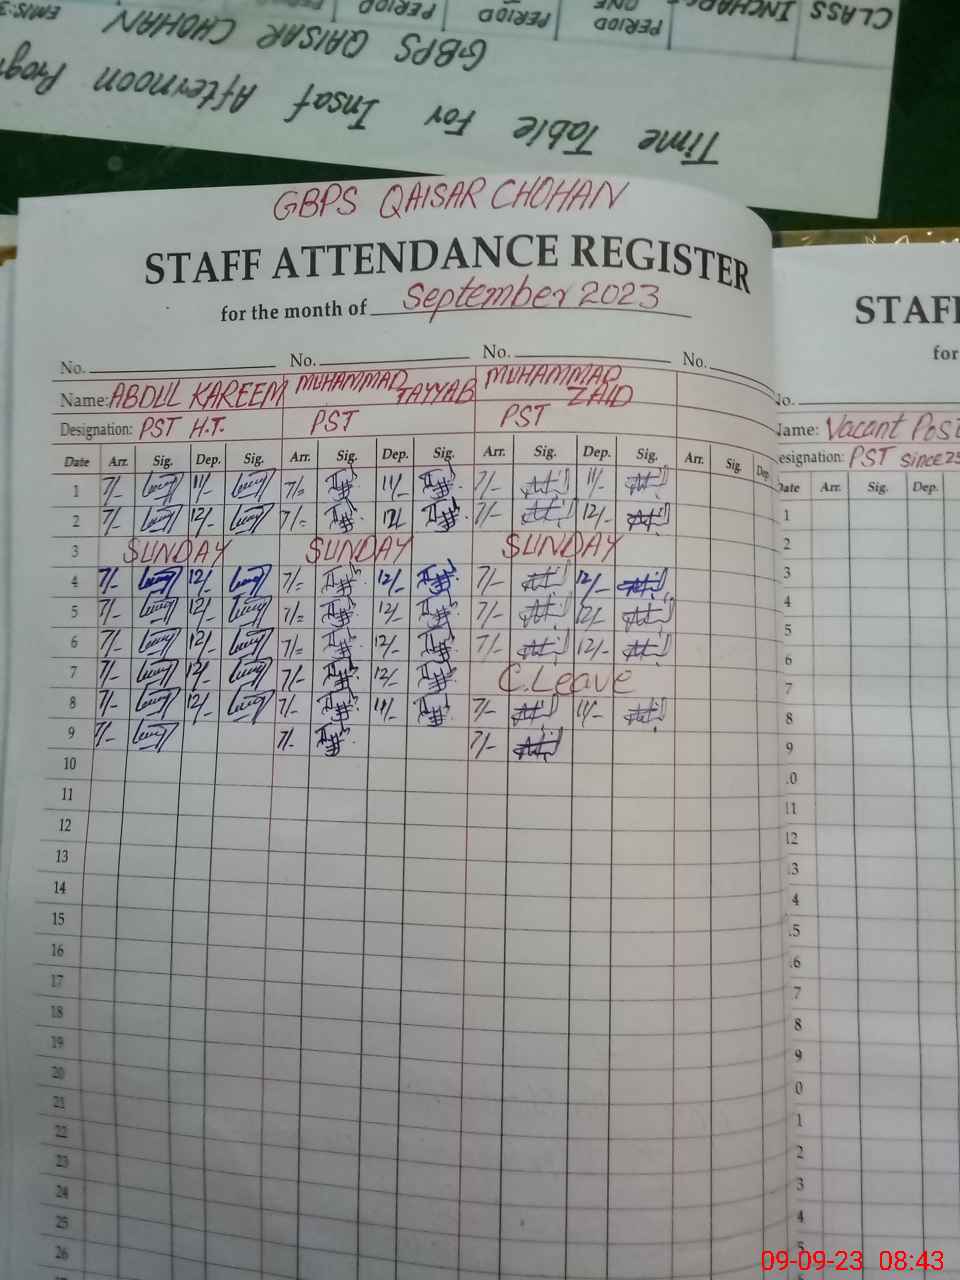 CLASS INCHAR
PERIOD ONE
PERIOD
PERIOD
PERIOD
EMIS:3
GBPS QAISAR CHOHAN
Time Table For Insaf Afternoon Progr
GBPS QAISAR CHOHAN
STAFF ATTENDANCE REGISTER
for the month of September 2023
No. No. No. No.
Name: ABDUL KAREEM MUHAMMAD TAYYAB MUHAMMAD ZAID
Designation: PST H.T. PST PST
Date Arr. Sig. Dep. Sig. Arr. Sig. Dep. Sig. Arr. Sig. Dep. Sig. Arr. Sig. Dep
1 7/- 11/- 7/= 11/- 7/- 11/-
2 7/- 12/- 7/= 12/- 7/- 12/-
3 SUNDAY SUNDAY SUNDAY
4 7/- 12/- 7/= 12/- 7/- 12/-
5 7/- 12/- 7/= 12/- 7/- 12/-
6 7/- 12/- 7/= 12/- 7/- 12/-
7 7/- 12/- 7/- 12/- C.Leave
8 7/- 12/- 7/- 11/- 7/- 11/-
9 7/- 7/- 7/-
10
11
12
13
14
15
16
17
18
19
20
21
22
23
24
25
26
STAFF
for
No.
Name: Vacant Post
esignation: PST Since 25
Date Arr. Sig. Dep.
1
2
3
4
5
6
7
8
9
.0
11
12
.3
4
.5
.6
7
8
9
0
1
2
3
4
5
09-09-23 08:43